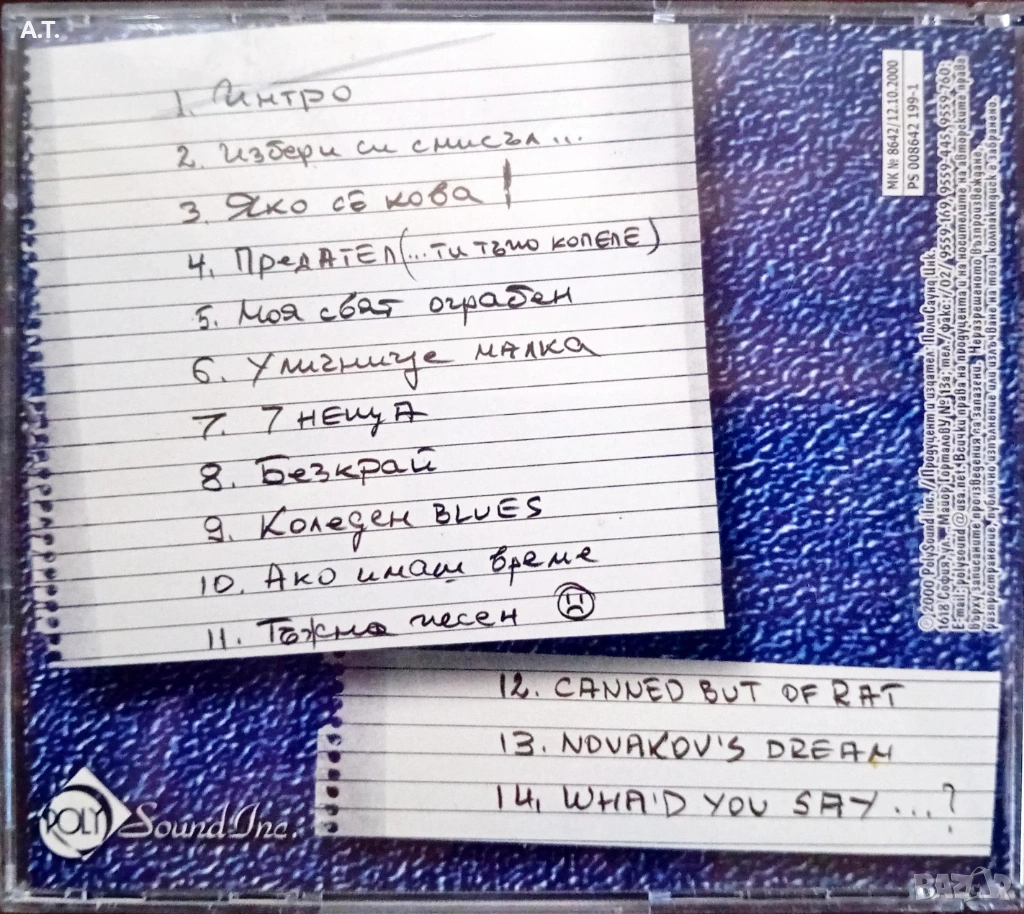 A.T.
1. Интро
2. Избери си смисъл...
3. Яко се кова!
4. Предател (...ти тъпо копеле)
5. Моя свят ограбен
6. Уличнице малка
7. 7 неща
8. Безкрай
9. Коледен BLUES
10. Ако имаш време
11. Тъжна песен
12. CANNED BUT OF RAT
13. NOVAKOV'S DREAM
14. WHA'D YOU SAY...?
POLY Sound Inc.
МК № 8642/12.10.2000
PS 008642 199-1
©2000 PolySound Inc. //Продуцент и издател: ПолиСаунд Инк.
1618 София, ул. "Майор Горталов" №13а; тел./факс: /02/ 9559-169, 9559-443, 9559-760;
E-mail: polysound@usa.net. Всички права на продуцента и на носителите на авторските права
върху записаните произведения са запазени. Неразрешеното възпроизвеждане,
разпространение, публично изпълнение или излъчване на този компактдиск е забранено.
BAZAR